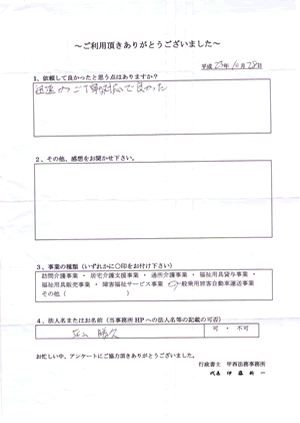 ～ご利用頂きありがとうございました～
平成 23年 10月 28日
1、依頼して良かったと思う点はありますか？
迅速かつご丁寧な対応で良かった
2、その他、感想をお聞かせ下さい。
3、事業の種類（いずれかに〇印をお付け下さい）
訪問介護事業 ・ 居宅介護支援事業 ・ 通所介護事業 ・ 福祉用具貸与事業 ・
福祉用具販売事業 ・ 障害福祉サービス事業 ・ 一般乗用旅客自動車運送事業
その他（　　　　　）
4、法人名またはお名前（当事務所 HP への法人名等の記載の可否）
可 ・ 不可
お忙しい中、アンケートにご協力頂きありがとうございました。
行政書士 甲西法務事務所
代表 伊藤 純一